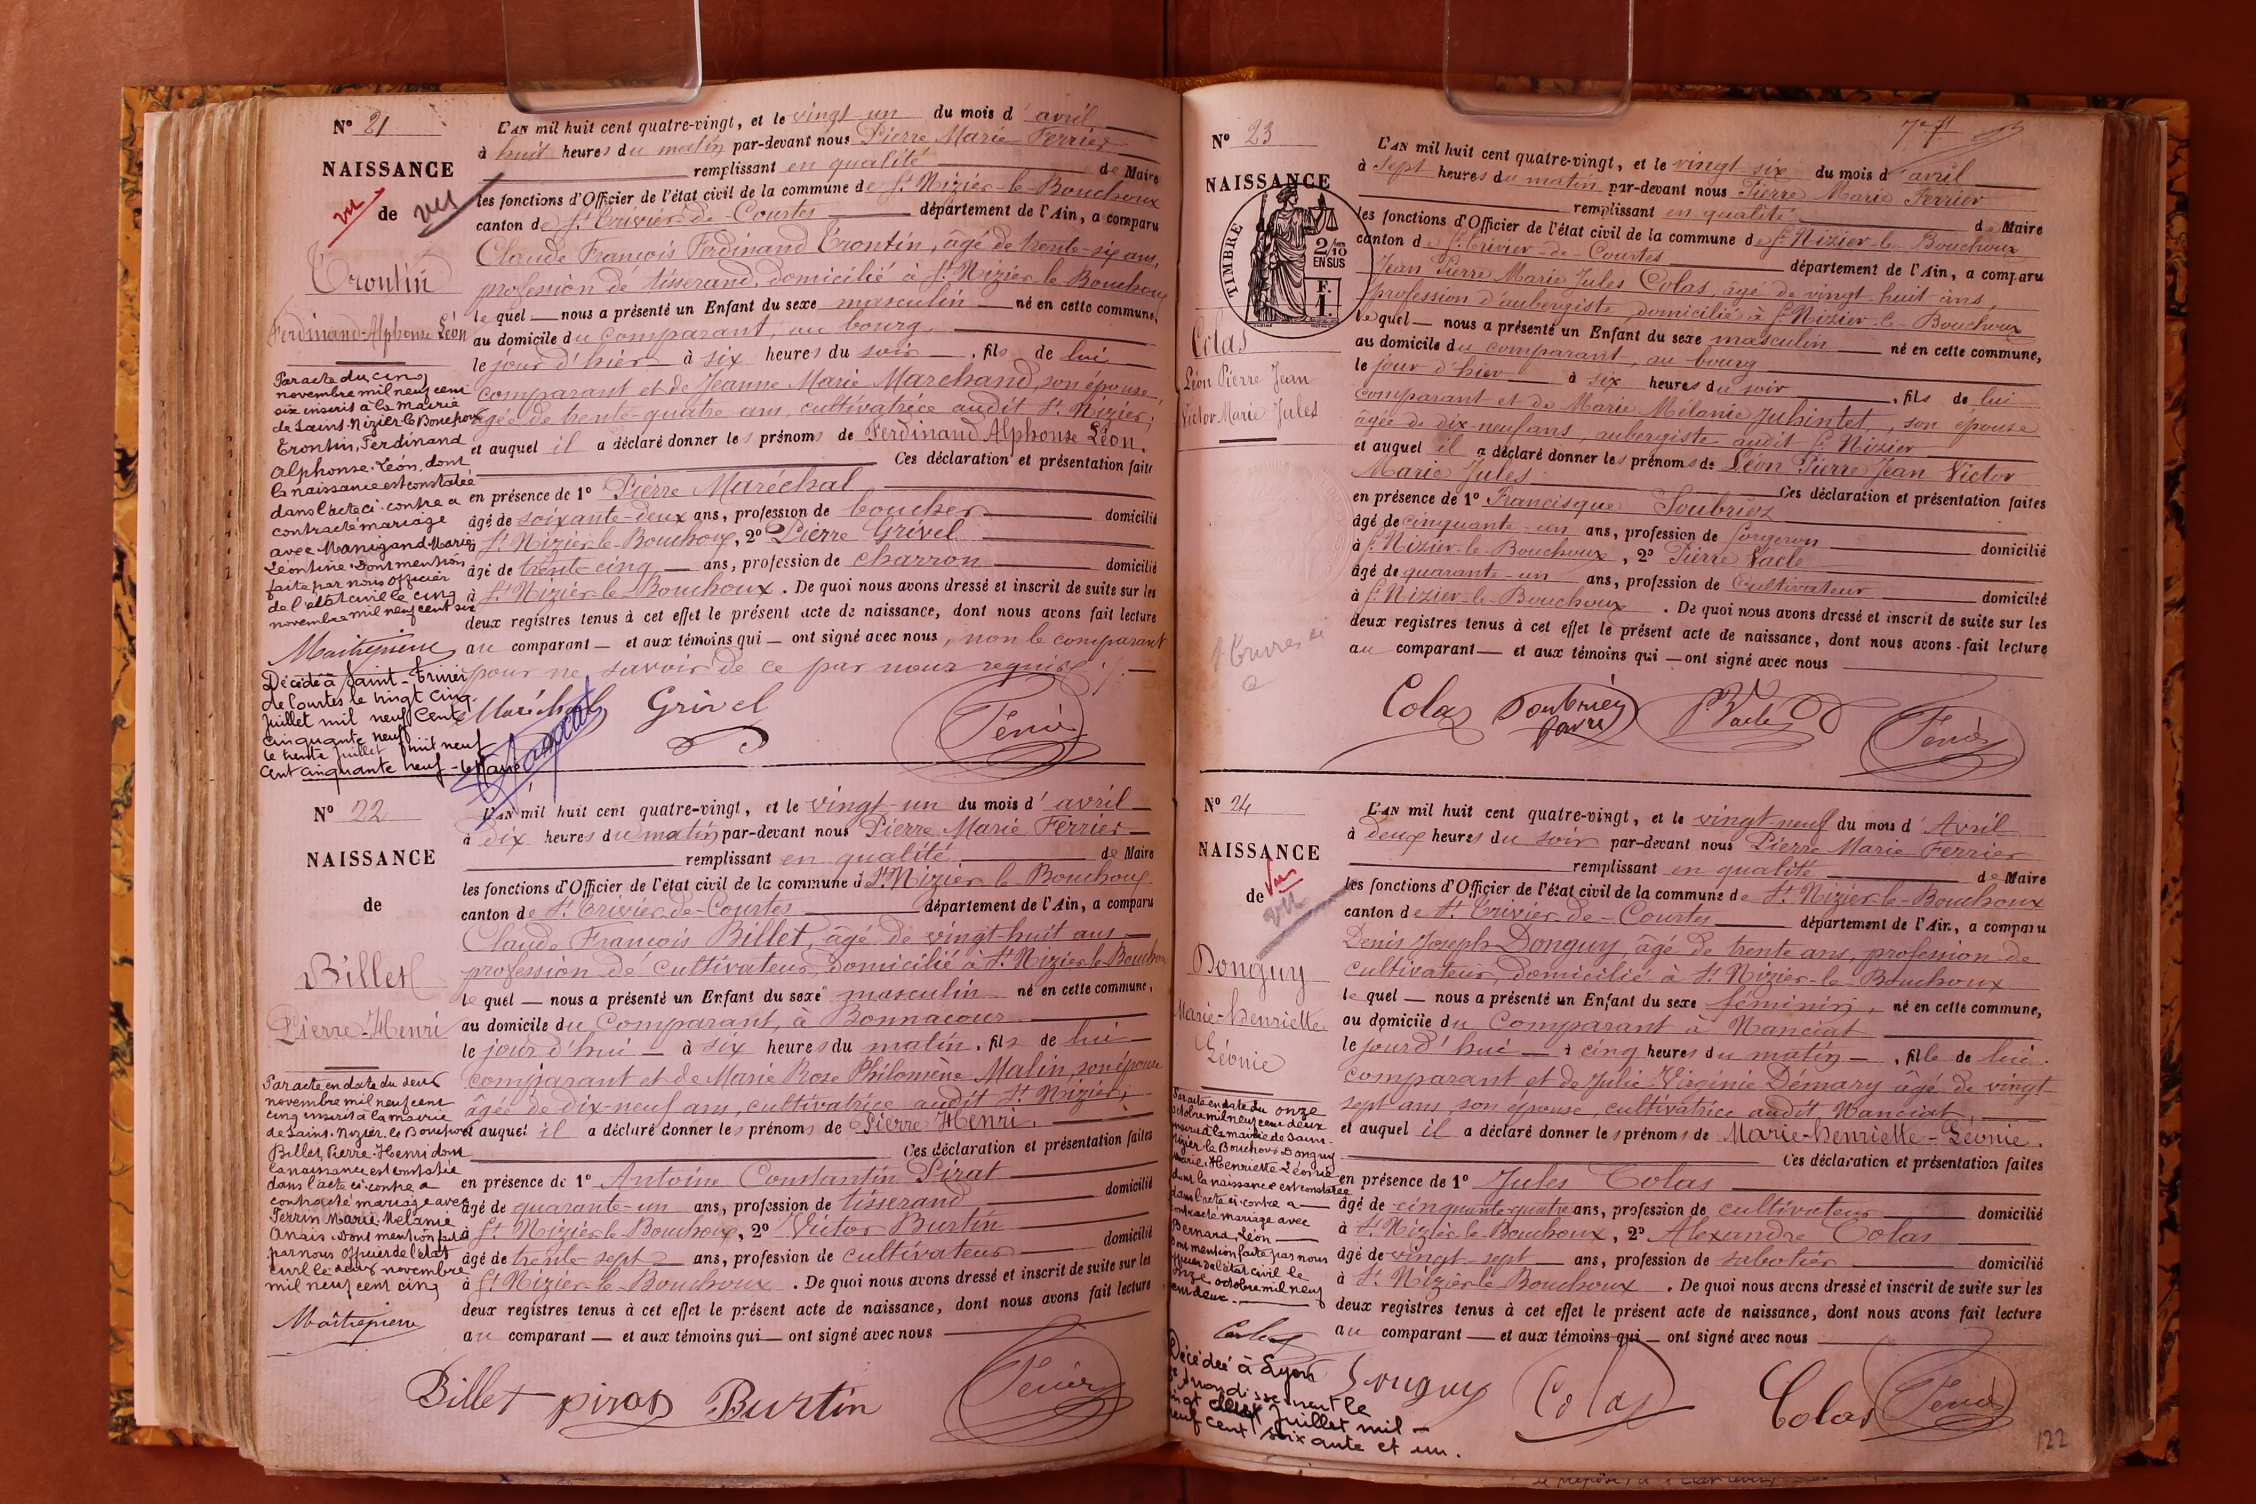 N° 21
NAISSANCE
vu de vu
Trontin
Ferdinand Alphonse Léon
Par acte du cinq
novembre mil neuf cent
six inscrit à la mairie
de Saint-Nizier-le-Bouchoux
Trontin, Ferdinand
Alphonse-Léon, dont
la naissance est constatée
dans l'acte ci-contre a
contracté mariage
avec Manigand Marie
Léontine. Dont mention
faite par nous officier
de l'état civil le cinq
novembre mil neuf cent six
Maitrepierre
Décédé à Saint-Trivier
de Courtes le vingt cinq
juillet mil neuf cent
cinquante neuf
le trente juillet mil neuf
cent cinquante neuf - le Maire
L'AN mil huit cent quatre-vingt, et le vingt un du mois d'avril
à huit heures du matin par-devant nous Pierre Marie Ferrier
remplissant en qualité de Maire
les fonctions d'Officier de l'état civil de la commune de St Nizier-le-Bouchoux
canton de St Trivier-de-Courtes département de l'Ain, a comparu
Claude François Ferdinand Trontin, âgé de trente-six ans,
profession de tisserand, domicilié à St Nizier le Bouchoux
lequel nous a présenté un Enfant du sexe masculin né en cette commune,
au domicile du comparant, au bourg
le jour d'hier à six heures du soir, fils de lui
comparant et de Jeanne Marie Marchand, son épouse,
âgée de trente-quatre ans, cultivatrice audit St Nizier;
et auquel il a déclaré donner les prénoms de Ferdinand Alphonse Léon.
Ces déclaration et présentation faite
en présence de 1° Pierre Maréchal
âgé de soixante-deux ans, profession de boucher domicilié
à St Nizier-le-Bouchoux, 2° Pierre Grével
âgé de trente-cinq ans, profession de charron domicilié
à St Nizier-le-Bouchoux. De quoi nous avons dressé et inscrit de suite sur les
deux registres tenus à cet effet le présent acte de naissance, dont nous avons fait lecture
au comparant et aux témoins qui ont signé avec nous, non le comparant
pour ne savoir de ce par nous requis.
Maréchal Grével Ferrier
N° 22
NAISSANCE
de
Billet
Pierre-Henri
Par acte en date du deux
novembre mil neuf cent
cinq inscrit à la mairie
de Saint-Nizier-le-Bouchoux
Billet, Pierre-Henri dont
la naissance est constatée
dans l'acte ci-contre a
contracté mariage avec
Perrin Marie-Mélanie
Anaïs. Dont mention faite
par nous officier de l'état
civil le deux novembre
mil neuf cent cinq
Maitrepierre
L'AN mil huit cent quatre-vingt, et le vingt-un du mois d'avril
à dix heures du matin par-devant nous Pierre Marie Ferrier
remplissant en qualité de Maire
les fonctions d'Officier de l'état civil de la commune de St Nizier-le-Bouchoux
canton de St Trivier-de-Courtes département de l'Ain, a comparu
Claude François Billet, âgé de vingt-huit ans
profession de cultivateur, domicilié à St Nizier-le-Bouchoux
lequel nous a présenté un Enfant du sexe masculin né en cette commune,
au domicile du comparant, à Bonnacour
le jour d'hui à six heures du matin, fils de lui
comparant et de Marie Rose Philomène Malin, son épouse
âgée de dix-neuf ans, cultivatrice audit St Nizier;
et auquel il a déclaré donner les prénoms de Pierre Henri.
Ces déclaration et présentation faites
en présence de 1° Antoine Constantin Pirat
âgé de quarante-un ans, profession de tisserand domicilié
à St Nizier-le-Bouchoux, 2° Victor Burtin
âgé de trente-sept ans, profession de cultivateur domicilié
à St Nizier-le-Bouchoux. De quoi nous avons dressé et inscrit de suite sur les
deux registres tenus à cet effet le présent acte de naissance, dont nous avons fait lecture
au comparant et aux témoins qui ont signé avec nous
Billet pirat Burtin Ferrier
N° 23
NAISSANCE
TIMBRE
2/10
EN SUS
F.
1.
Colas
Léon Pierre Jean
Victor Marie Jules
L'AN mil huit cent quatre-vingt, et le vingt six du mois d'avril
à Sept heures du matin par-devant nous Pierre Marie Ferrier
remplissant en qualité de Maire
les fonctions d'Officier de l'état civil de la commune de St Nizier-le-Bouchoux
canton de St Trivier-de-Courtes département de l'Ain, a comparu
Jean Pierre Marie Jules Colas, âgé de vingt-huit ans,
profession d'aubergiste, domicilié à St Nizier-le-Bouchoux
lequel nous a présenté un Enfant du sexe masculin né en cette commune,
au domicile du comparant, au bourg
le jour d'hier à six heures du soir, fils de lui
comparant et de Marie Mélanie Juhintet, son épouse
âgée de dix-neuf ans, aubergiste audit St Nizier
et auquel il a déclaré donner les prénoms de Léon Pierre Jean Victor
Marie Jules. Ces déclaration et présentation faites
en présence de 1° Francisque Soubriez
âgé de cinquante-un ans, profession de forgeron domicilié
à St Nizier-le-Bouchoux, 2° Pierre Vacle
âgé de quarante-un ans, profession de Cultivateur domicilié
à St Nizier-le-Bouchoux. De quoi nous avons dressé et inscrit de suite sur les
deux registres tenus à cet effet le présent acte de naissance, dont nous avons fait lecture
au comparant et aux témoins qui ont signé avec nous
Colas Soubriez P. Vacle Ferrier
N° 24
NAISSANCE
de Vu
vu
Donguy
Marie-henriette
Léonie
Par acte en date du onze
octobre mil neuf cent deux
inscrit à la mairie de Saint-
Nizier-le-Bouchoux Donguy
Marie-Henriette Léonie
dont la naissance est constatée
dans l'acte ci-contre a
contracté mariage avec
Bernard, Léon
dont mention faite par nous
officier de l'état civil le
onze octobre mil neuf
cent deux.
Décédée à Lyon
arrondissement le
vingt deux juillet mil
neuf cent soixante et un.
L'AN mil huit cent quatre-vingt, et le vingt neuf du mois d'Avril
à deux heures du soir par-devant nous Pierre Marie Ferrier
remplissant en qualité de Maire
les fonctions d'Officier de l'état civil de la commune de St Nizier-le-Bouchoux
canton de St Trivier-de-Courtes département de l'Ain, a comparu
Denis Joseph Donguy, âgé de trente ans, profession de
cultivateur, domicilié à St Nizier-le-Bouchoux
lequel nous a présenté un Enfant du sexe féminin, né en cette commune,
au domicile du comparant à Manciat
le jour d'hui à cinq heures du matin, fille de lui
comparant et de Julie Virginie Démary âgé de vingt
sept ans, son épouse, cultivatrice audit Manciat,
et auquel il a déclaré donner les prénoms de Marie-henriette-Léonie.
Ces déclaration et présentation faites
en présence de 1° Jules Colas
âgé de cinquante quatre ans, profession de cultivateur domicilié
à St Nizier-le-Bouchoux, 2° Alexandre Colas
âgé de vingt-sept ans, profession de sabotier domicilié
à St Nizier-le-Bouchoux. De quoi nous avons dressé et inscrit de suite sur les
deux registres tenus à cet effet le présent acte de naissance, dont nous avons fait lecture
au comparant et aux témoins qui ont signé avec nous
Donguy Colas Colas Ferrier
122